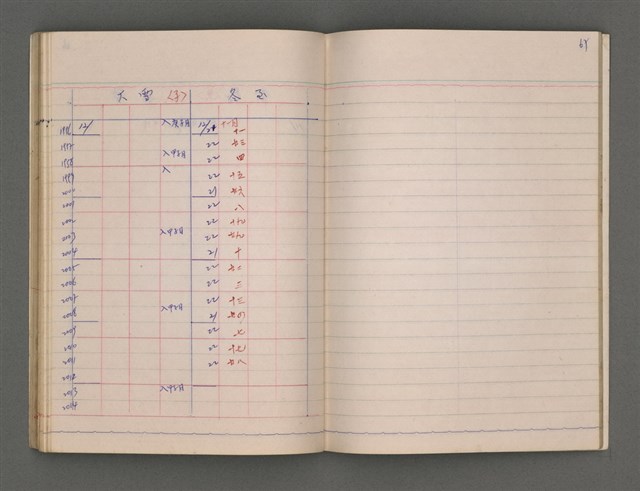 64
大雪 (子) 冬至
1996 12/ 12/21 十一月 十一
1997 22 廿三
1998 22 四
1999 入 22 十五
2000 21 廿六
2001 22 八
2002 22 十九
2003 22 廿九
2004 21 十
2005 22 廿二
2006 22 三
2007 22 十三
2008 21 廿四
2009 22 七
2010 22 十七
2011 22 廿八
2012
2013
2014